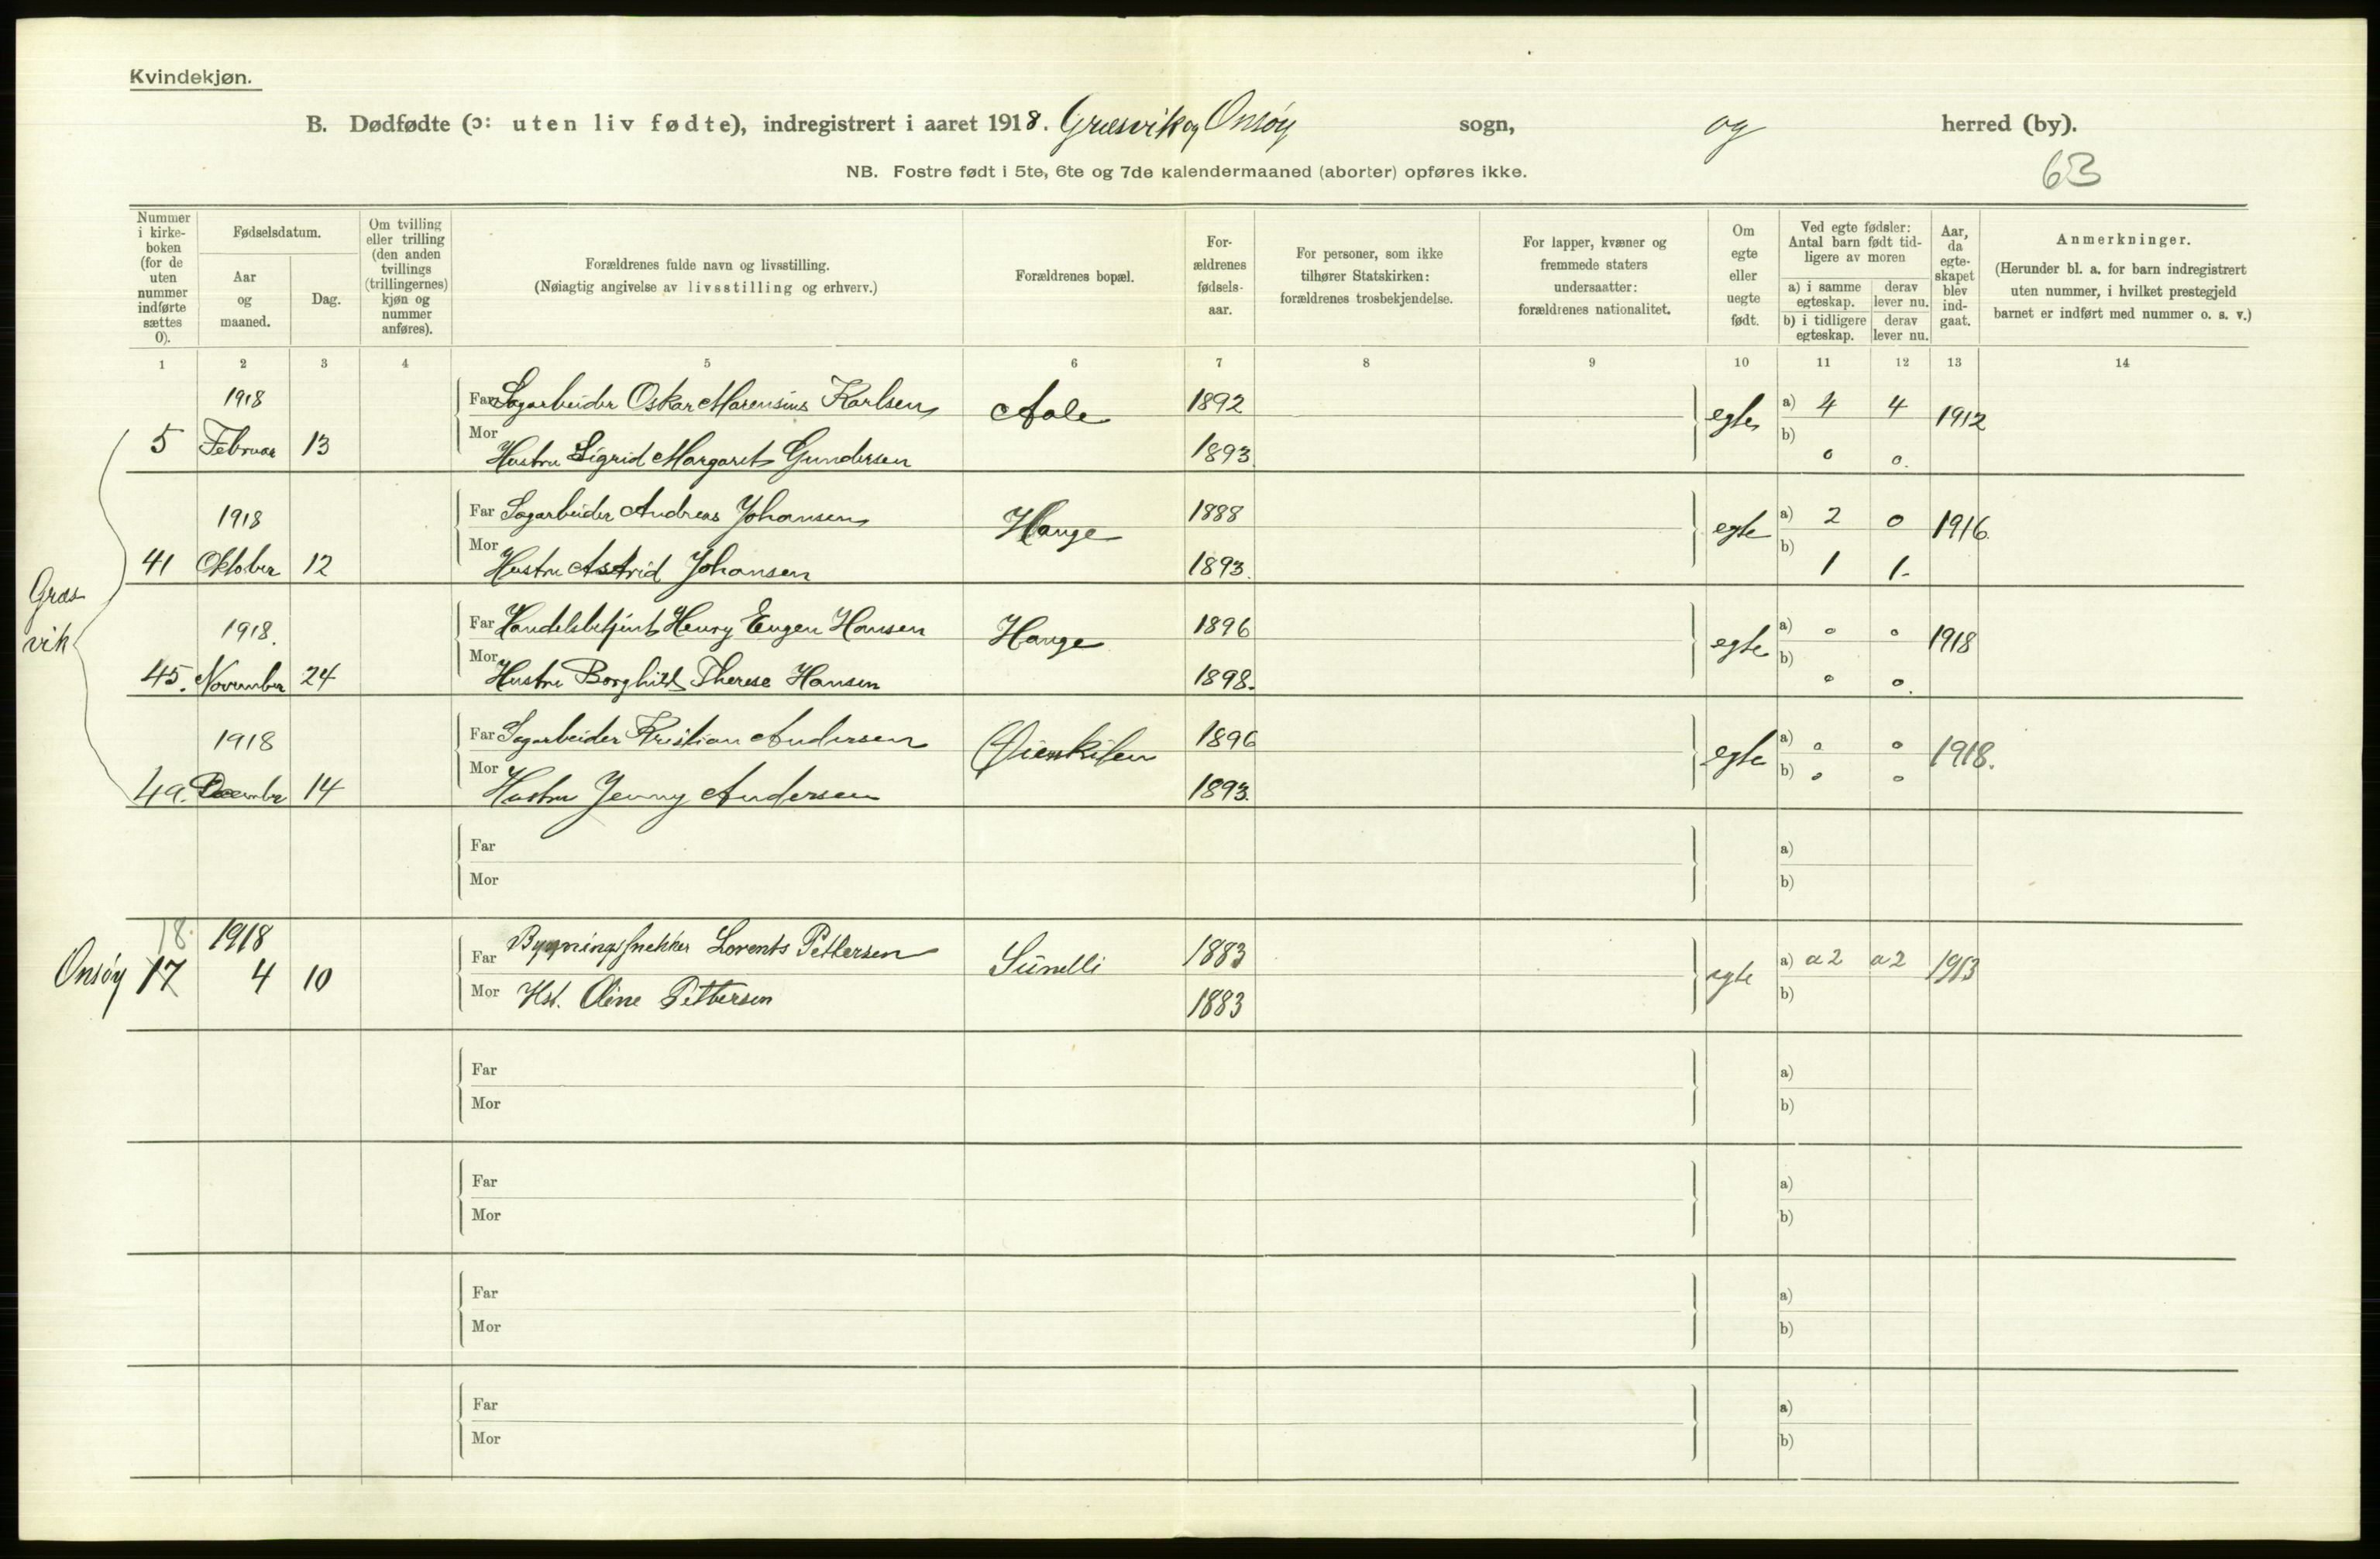 Kvindekjøn.
B. Dødfødte (ɔ: uten liv fødte), indregistrert i aaret 1918. Græsvik og Onsøy sogn, og herred (by).
63
NB. Fostre født i 5te, 6te og 7de kalendermaaned (aborter) opføres ikke.
Nummer i kirke-boken (for de uten nummer indførte sættes 0).
Fødselsdatum.
Aar og maaned.
Dag.
Om tvilling eller trilling (den anden tvillings (trillingernes) kjøn og nummer anføres).
Forældrenes fulde navn og livsstilling.
(Nøiagtig angivelse av livsstilling og erhverv.)
Forældrenes bopæl.
For-ældrenes fødsels-aar.
For personer, som ikke tilhører Statskirken: forældrenes trosbekjendelse.
For lapper, kvæner og fremmede staters undersaatter: forældrenes nationalitet.
Om egte eller uegte født.
Ved egte fødsler: Antal barn født tid-ligere av moren
a) i samme egteskap.
derav lever nu.
b) i tidligere egteskap.
derav lever nu.
Aar, da egte-skapet blev ind-gaat.
Anmerkninger.
(Herunder bl. a. for barn indregistrert uten nummer, i hvilket prestegjeld barnet er indført med nummer o. s. v.)
1 2 3 4 5 6 7 8 9 10 11 12 13 14
Græs
vik
1918 Far Sagarbeider Oskar Marensius Karlsen Aale 1892 egte a) 4 4 1912
5 Februar 13 Mor Hustru Sigrid Margaret Gundersen 1893 b) 0 0.
1918 Far Sagarbeider Andreas Johansen Hauge 1888 egte a) 2 0 1916.
41 Oktober 12 Mor Hustru Astrid Johansen 1893. b) 1 1.
1918. Far Handelsbetjent Henry Eugen Hansen Hauge 1896 egte a) 0 0 1918
45. November 24 Mor Hustru Borghild Therese Hansen 1898. b) 0 0.
1918 Far Sagarbeider Kristian Andersen 1896 egte a) 0 0 1918.
49. December 14 Mor Hustru Jenny Andersen 1893. b) 0 0
Far a)
Mor b)
18. 1918 Far Bygningssnekker Lorents Pettersen 1883 egte a) a2 a2 1913
Onsøy 17 4 10 Mor Hst. Oline Pettersen 1883 b)
Far a)
Mor b)
Far a)
Mor b)
Far a)
Mor b)
Far a)
Mor b)